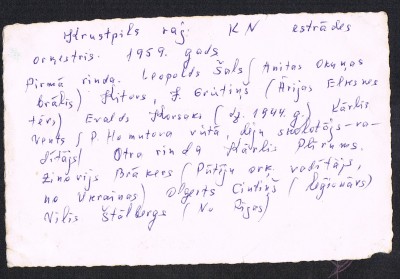 Krustpils raj. KN estrādes
orķestris. 1959. gads
Pirmā rinda. Leopolds Šals (Anitas Okuņas
brālis) Kitovs, J. Grūtiņš (Ārijas Elksnes
tēvs) Evalds (dz. 1944. g.) Kārlis
Vents (P. Homutova vietā, deju skolotājs-va-
dītājs) Otra rinda Kārlis Plūrums.
Zinovijs Brākers (Pūtēju ork. vadītājs,
no Ukrainas) Oļģerts Cintiņš (leģionārs)
Vilis Štālbergs (No Rīgas)